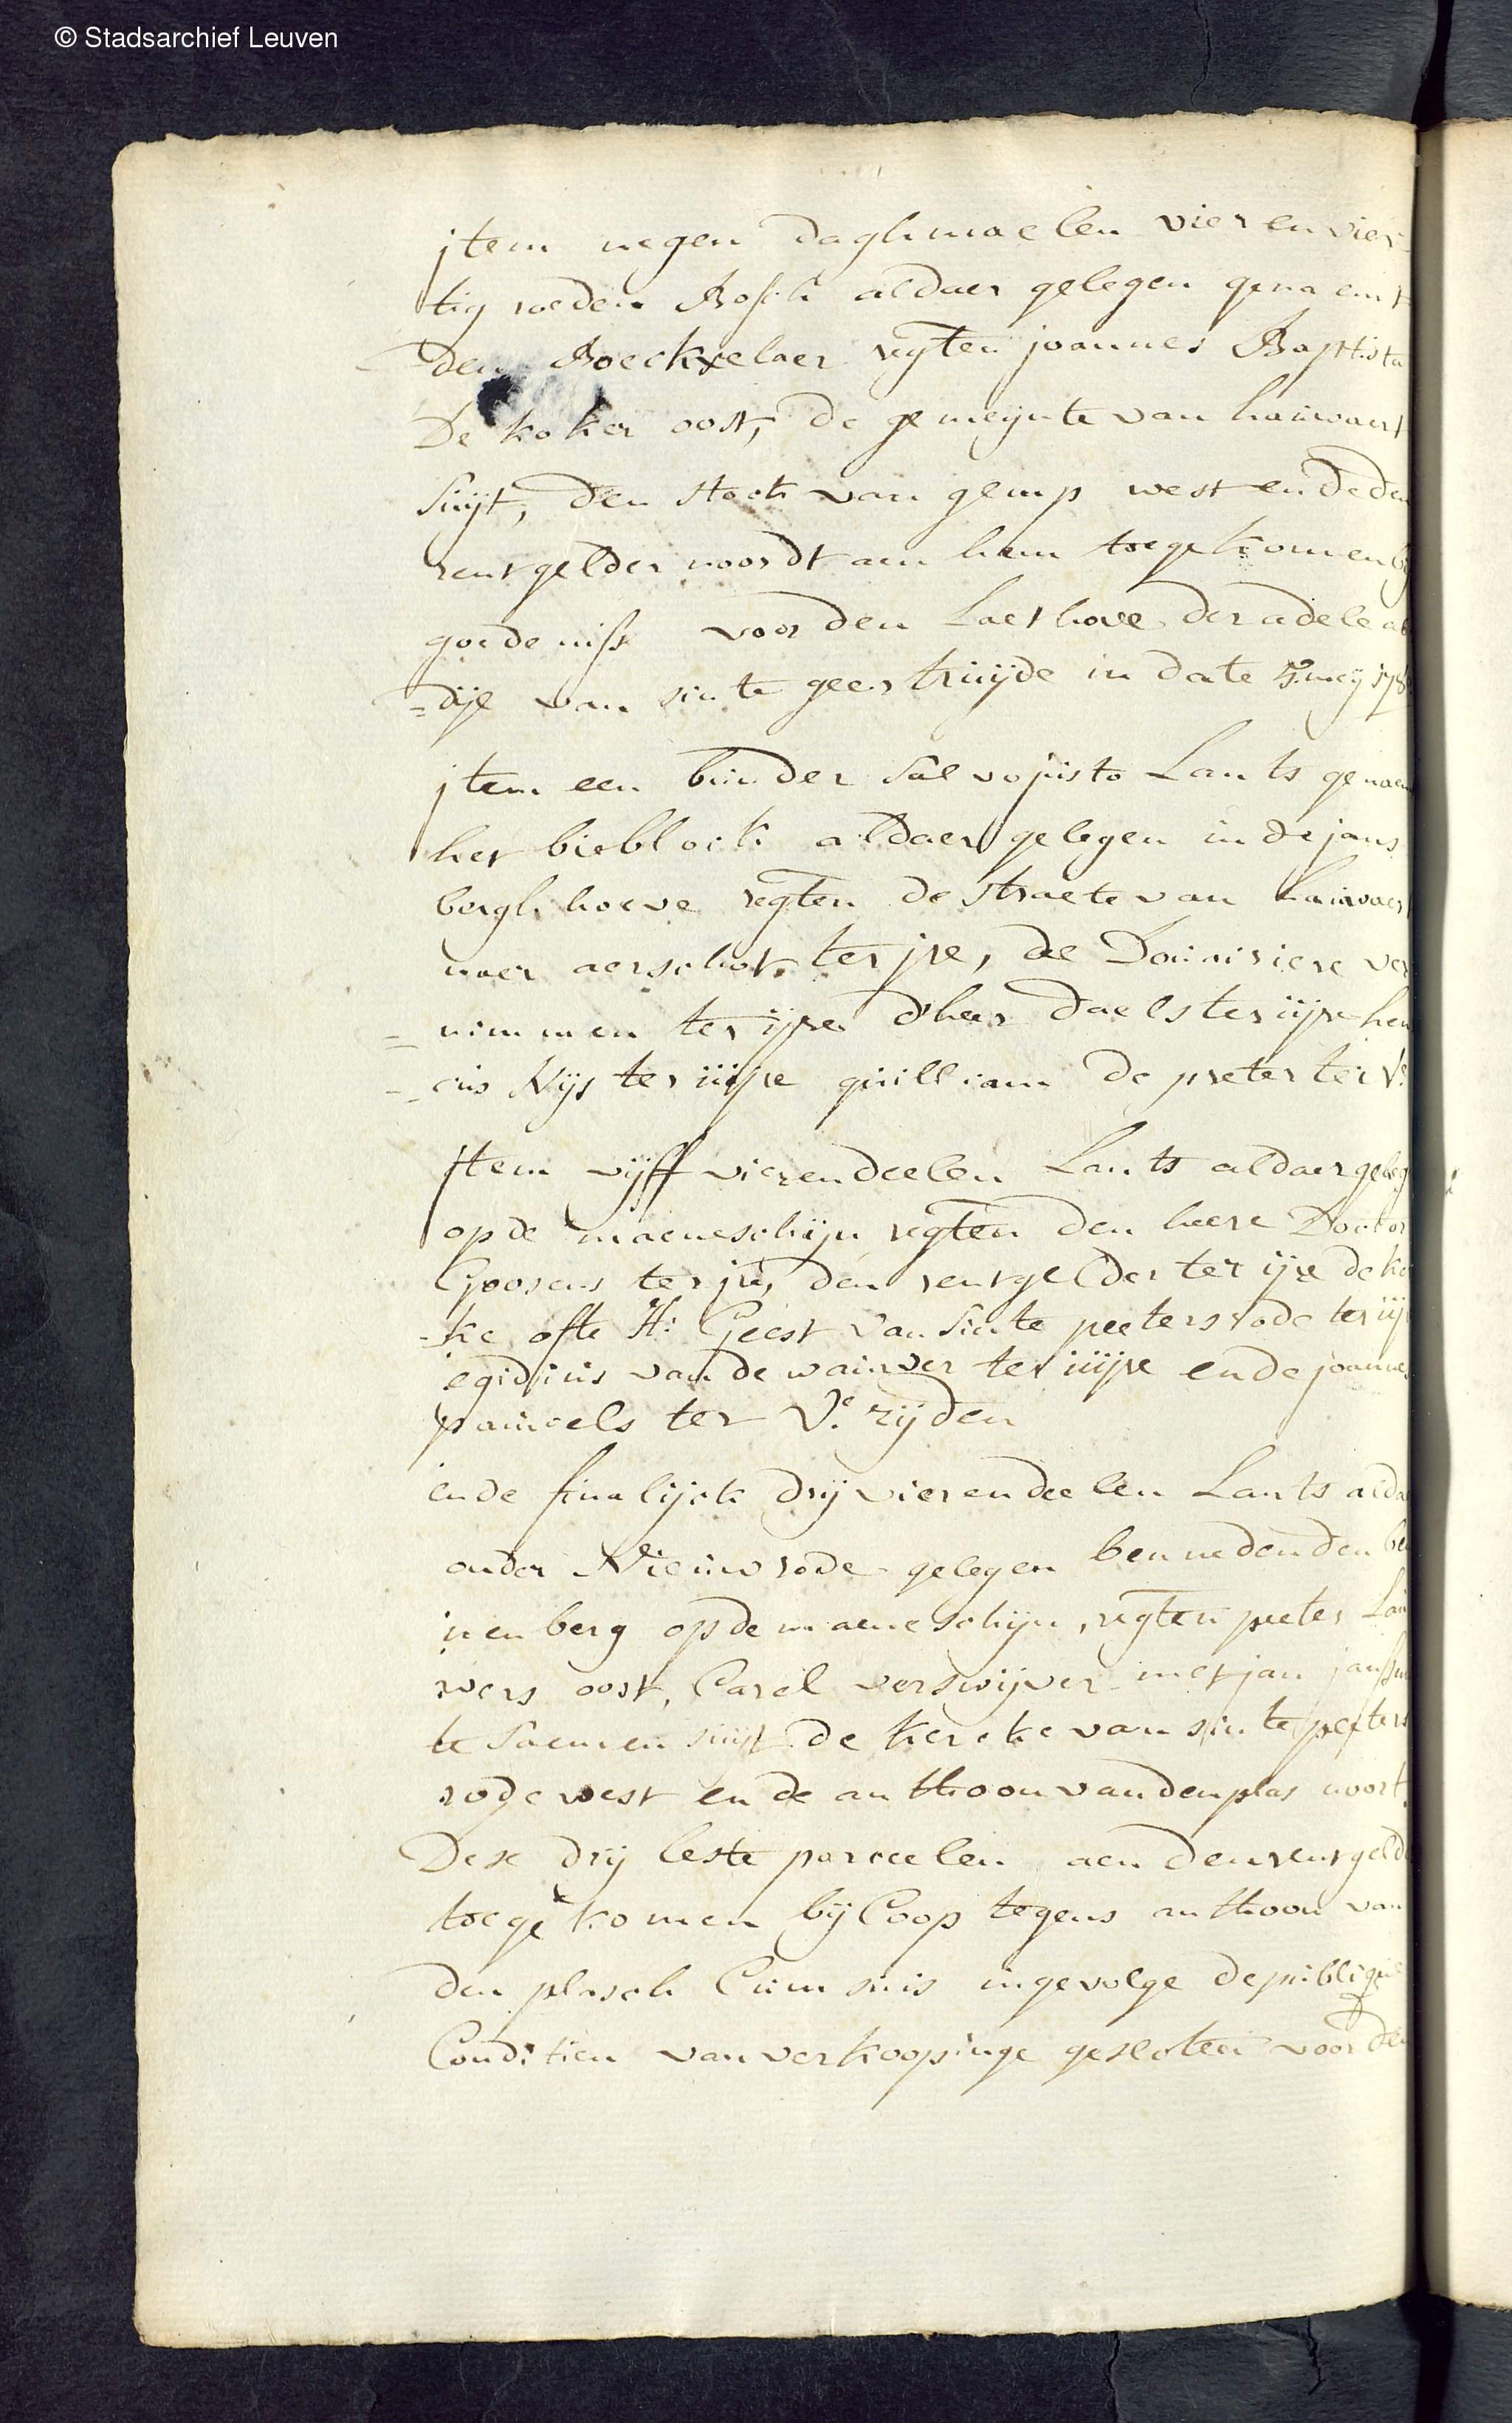 © Stadsarchief Leuven
jtem negen daghmaelen vier en vier-
tig roeden Bosch aldaer gelegen genaemt
den Boeckxelaer regten joannes Baptista
De koker oost, de gemeijnte van hauwaert
suijt, den stock van gemp west ende den
rentgelder noordt aen hem toegekomen bij
goedeniss voor den Laethove der adele ab
=dije van sinte geertruijde in date meij
jtem een bunder salvo justo Lants genaem
het biebloick aldaer gelegen in de jans
bergh hoeve regten de straete van hauwaert
naer aerschot ter jre, de Douairiere ver
=nimmen ter ijre d'heer Daels ter iijre hen
=cus Nijs ter iiijre guilliam De preter ter Ve
jtem vijff vierendeelen Lants aldaer geleg
op de maeneschijn regten den heere Doctor
Goosens ter jre, den rentgelder ter ijre de ke
-ke ofte H: Geest van Sinte peetersrode ter iij
egidius van de wauwer ter iiijre ende joannes
pauwels ter Ve. zijden
ende finalijck drij vierendeelen Lants alda
onder Nieuwrode gelegen benneden den
nenberg op de maeneschijn, regten peeter Lau
wers oost, Carel verswijver met jan janssens
te saemen suijt de kercke van sinte peeters
rode west ende anthoon vanden plas noort.
Dese drij leste parceelen aen den rentgelde
toegekomen bij Coop tegens anthoon van
den plasch Cum suis ingevolge de publique
Conditien van verkoopinge gesloten voor den